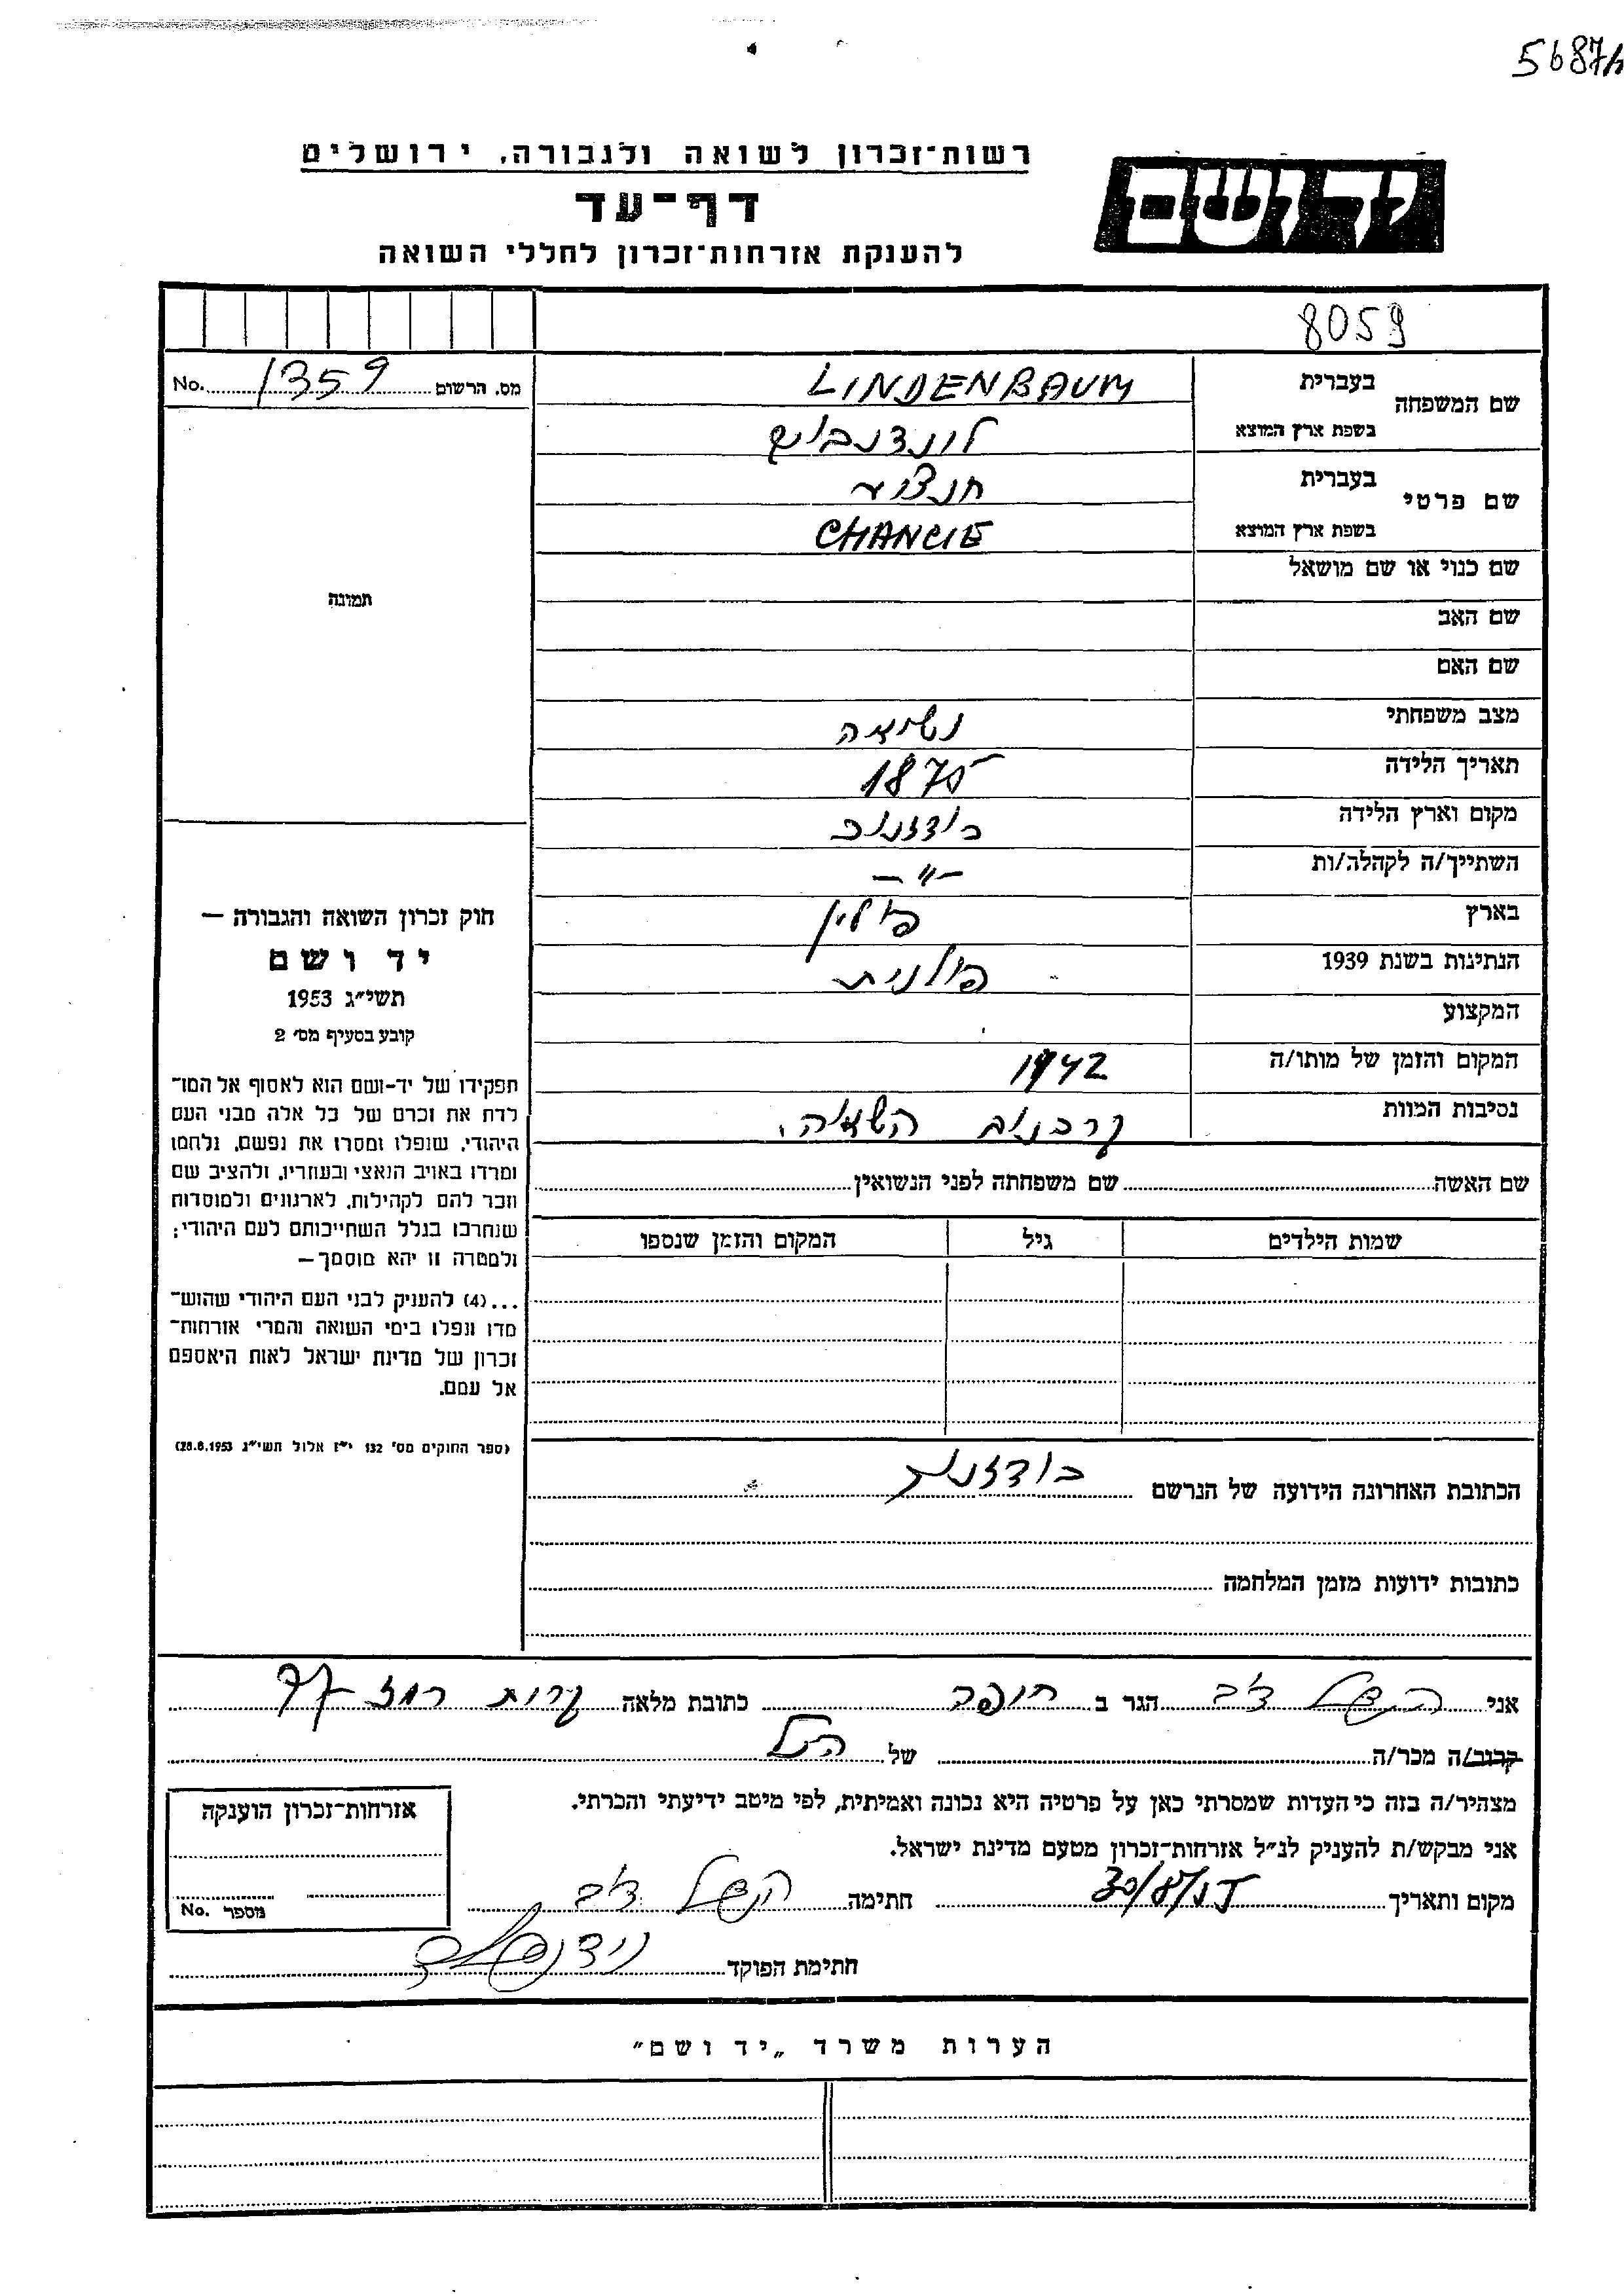 5687
רשות־זכרון לשואה ולגבורה, ירושלים
יד ושם
דף־עד
להענקת אזרחות־זכרון לחללי השואה
8059
מס. הרשום 1359 No.
שם המשפחה
בעברית
LINDENBAUM
בשפת ארץ המוצא
לינדנבוים
שם פרטי
בעברית
חנציע
בשפת ארץ המוצא
CHANCIE
שם כנוי או שם מושאל
תמונה
שם האב
שם האם
מצב משפחתי נשואה
תאריך הלידה 1875
מקום וארץ הלידה בודזנוב
השתייך/ה לקהלה/ות -"-
בארץ פולין
הנתינות בשנת 1939 פולנית
המקצוע
המקום והזמן של מותו/ה 1942
נסיבות המוות קרבנות השואה.
שם האשה שם משפחתה לפני הנשואין
שמות הילדים גיל המקום והזמן שנספו
הכתובת האחרונה הידועה של הנרשם בודזנוב
כתובות ידועות מזמן המלחמה
חוק זכרון השואה והגבורה —
יד ושם
תשי״ג 1953
קובע בסעיף מס׳ 2
תפקידו של יד-ושם הוא לאסוף אל המו־
לדת את זכרם של כל אלה מבני העם
היהודי, שנפלו ומסרו את נפשם, נלחמו
ומרדו באויב הנאצי ובעוזריו, ולהציב שם
וזכר להם לקהילות, לארגונים ולמוסדות
שנחרבו בגלל השתייכותם לעם היהודי;
ולמטרה זו יהא מוסמך—
...(4) להעניק לבני העם היהודי שהוש־
מדו ונפלו בימי השואה והמרי אזרחות־
זכרון של מדינת ישראל לאות היאספם
אל עמם.
(ספר החוקים מס׳ 132 י״ז אלול תשי״ג 28.8.1953)
אני הגר ב חיפה כתובת מלאה
קרוב/ה מכר/ה של
מצהיר/ה בזה כי העדות שמסרתי כאן על פרטיה היא נכונה ואמיתית, לפי מיטב ידיעתי והכרתי.
אני מבקש/ת להעניק לנ״ל אזרחות־זכרון מטעם מדינת ישראל.
מקום ותאריך חתימה
חתימת הפוקד
אזרחות־זכרון הוענקה
מספר No.
הערות משרד „יד ושם״